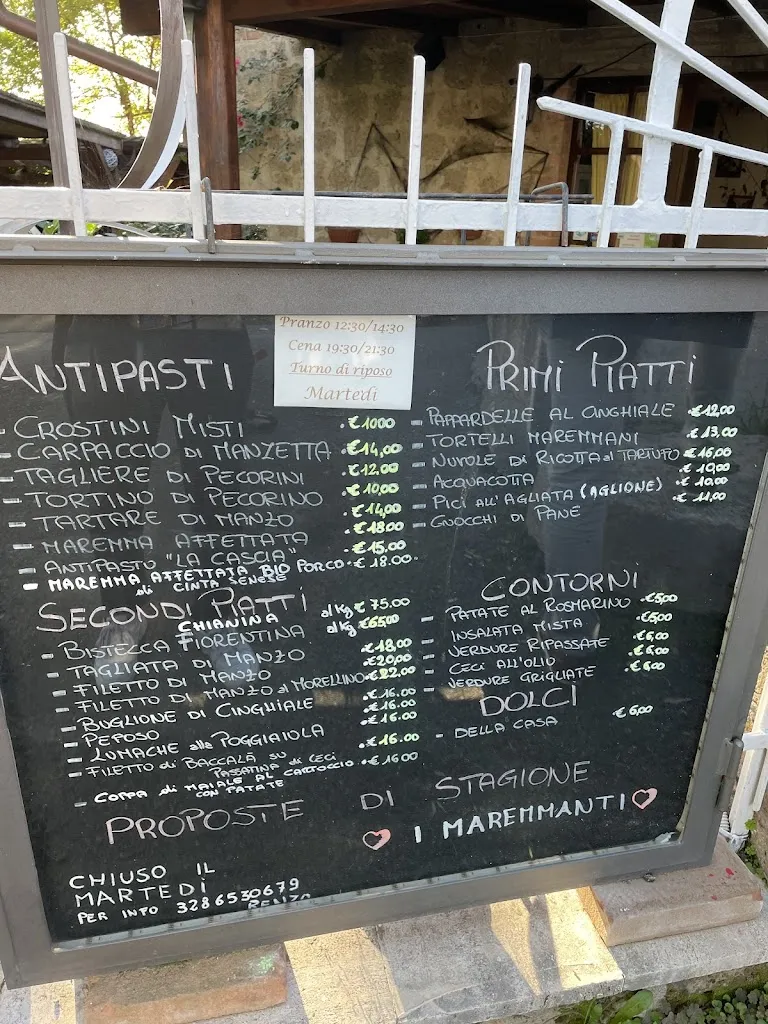 Pranzo 12:30/14:30
Cena 19:30/21:30
Turno di riposo
Martedì
ANTIPASTI
- CROSTINI MISTI · € 1000
- CARPACCIO DI MANZETTA · € 14,00
- TAGLIERE DI PECORINI · € 12,00
- TORTINO DI PECORINO · € 10,00
- TARTARE DI MANZO · € 14,00
- MAREMMA AFFETTATA · € 18.00
- ANTIPASTO "LA CASCIA" · € 15,00
- MAREMMA AFFETTATA BIO PORCO · € 18.00
di CINTA SENESE
SECONDI PIATTI
CHIANINA al Kg € 75.00
- BISTECCA FIORENTINA al Kg € 65.00
- TAGLIATA DI MANZO · € 18,00
- FILETTO DI MANZO · € 20,00
- FILETTO DI MANZO al MORELLINO · € 22.00
- BUGLIONE DI CINGHIALE · € 16.00
- PEPOSO · € 16.00
- LUMACHE alla POGGIAIOLA · € 16.00
- FILETTO di BACCALÀ SU · € 16.00
PASSATINA di CECI
- COPPA di MAIALE AL CARTOCCIO · € 16 00
CON PATATE
PRIMI PIATTI
- PAPPARDELLE AL CINGHIALE · € 12,00
- TORTELLI MAREMMANI · € 13,00
- NUVOLE DI RICOTTA al TARTUFO € 16,00
- ACQUACOTTA · € 10,00
- PICI ALL'AGLIATA (AGLIONE) · € 10.00
- GNOCCHI DI PANE · € 11,00
CONTORNI
- PATATE AL ROSMARINO · € 5,00
- INSALATA MISTA · € 5,00
- VERDURE RIPASSATE · € 6,00
- CECI ALL'OLIO · € 6,00
- VERDURE GRIGLIATE · € 6,00
DOLCI
- DELLA CASA € 6,00
PROPOSTE DI STAGIONE
I MAREMMANTI
CHIUSO IL
MARTEDÌ
PER INFO 3286530679
RENZO